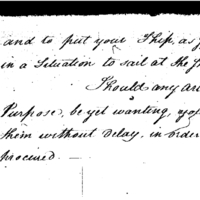 and to put your Ship, as
in a Situation to sail at the
Should any
Purpose, be yet wanting, you
them without delay, in order
procured.